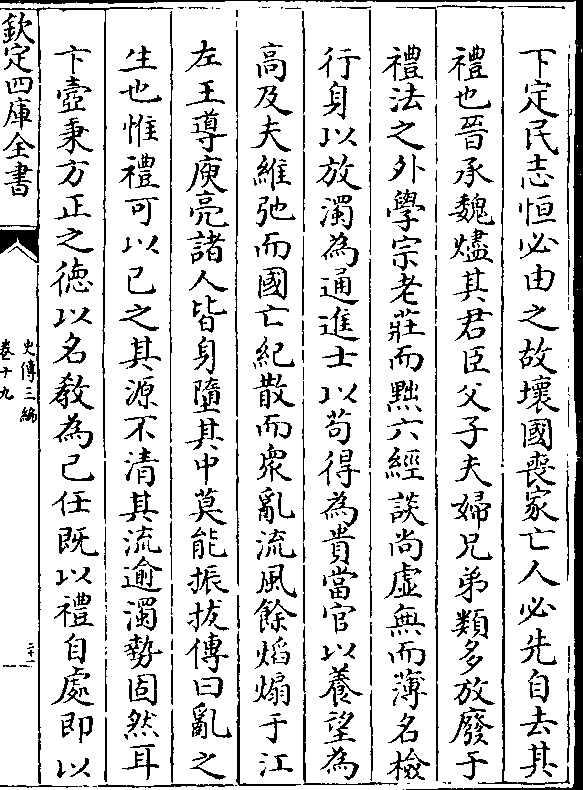 下定民志恒必由之故壞國喪家亡人必先自去其
禮也晉承魏燼其君臣父子夫婦兄弟類多放廢于
禮法之外學宗老莊而黜六經談尚虛無而薄名檢
行身以放濁為通進士以苟得為貴當官以養望為
高及夫維弛而國亡紀散而衆亂流風餘焰煽于江
左王導庾亮諸人皆身墮其中莫能振拔傳曰亂之
生也惟禮可以已之其源不清其流逾濁勢固然耳
卞壼秉方正之徳以名教為己任既以禮自處即以
欽定四庫全書
史傳三編
卷十九